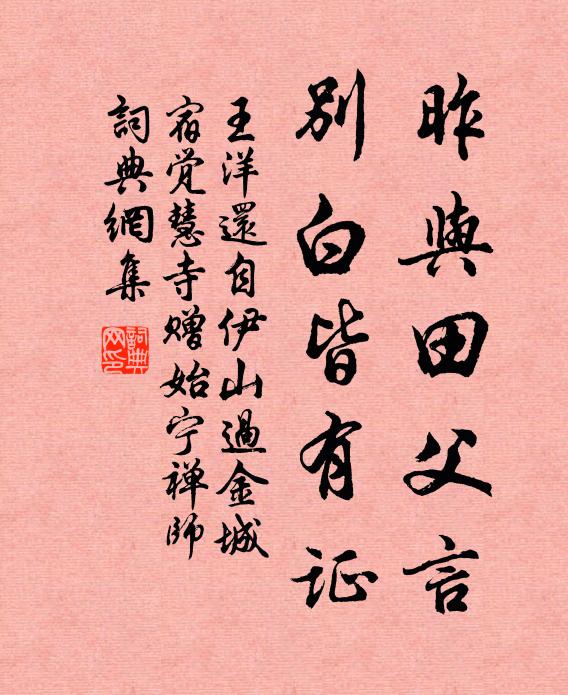 昨與田父言
别白皆有证
王洋還自伊山過金城
宿觉慧寺赠始宁禅師
詞典網集
詞典
网印